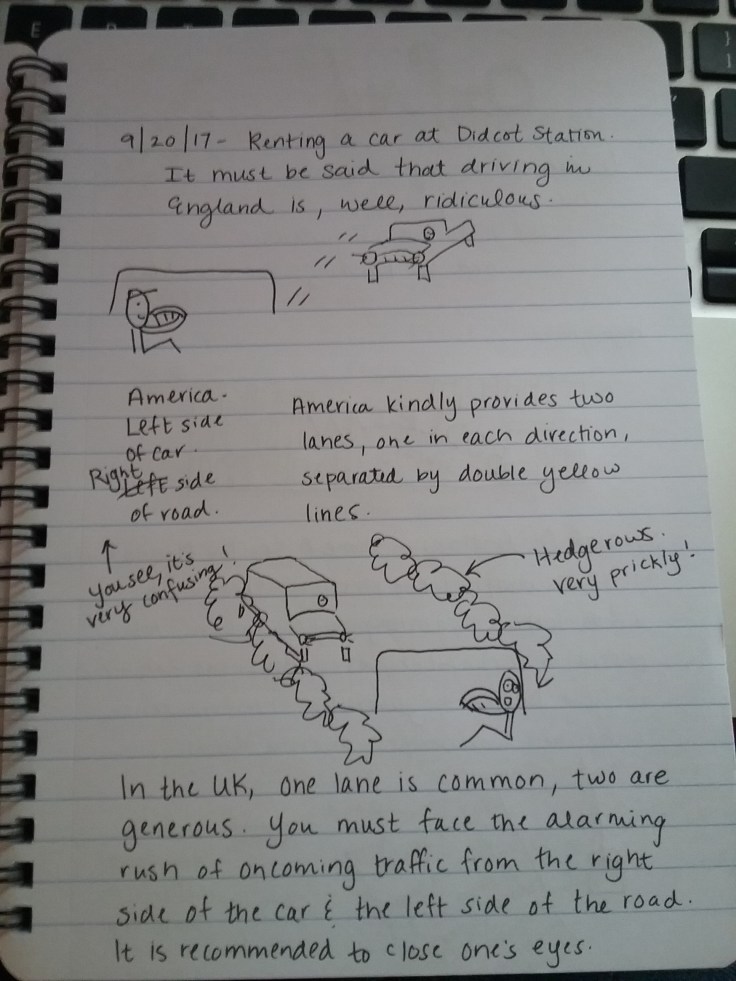 9/20/17- Renting a car at Didcot Station.
It must be said that driving in
England is, well, ridiculous.
America.
Left side
of car.
Right Left side
of road.
↑
you see, it's
very confusing!
America kindly provides two
lanes, one in each direction,
separated by double yellow
lines.
Hedgerows.
very prickly!
In the UK, one lane is common, two are
generous. You must face the alarming
rush of oncoming traffic from the right
side of the car & the left side of the road.
It is recommended to close one's eyes.